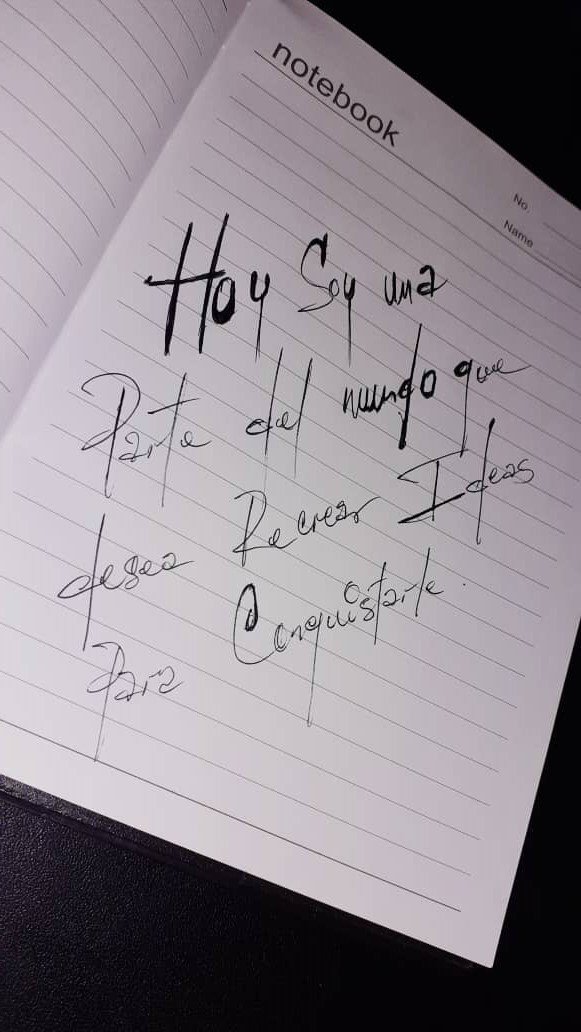 notebook
No
Name
Hoy Soy una
Parte del mundo que
desea Recrear Ideas
Para Conquistarte.